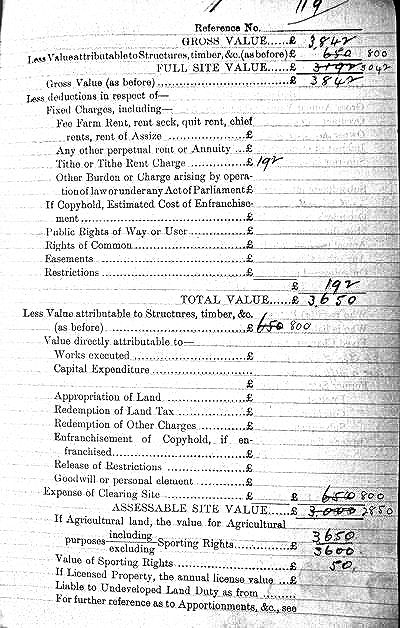 119
Reference No.
GROSS VALUE......£ 3842
Less Value attributable to Structures, timber, &c. (as before) £ 650 800
FULL SITE VALUE......£ 3192 3042
Gross Value (as before) ...................£ 3842
Less deductions in respect of—
Fixed Charges, including—
Fee Farm Rent, rent seck, quit rent, chief
rents, rent of Assize ..................£
Any other perpetual rent or Annuity ...£
Tithe or Tithe Rent Charge ............£ 192
Other Burden or Charge arising by opera-
tion of law or under any Act of Parliament £
If Copyhold, Estimated Cost of Enfranchise-
ment.....................................£
Public Rights of Way or User............£
Rights of Common........................£
Easements ..............................£
Restrictions ...........................£
£ 192
TOTAL VALUE......£ 3650
Less Value attributable to Structures, timber, &c.
(as before) ............................£ 650 800
Value directly attributable to—
Works executed .....................£
Capital Expenditure ....................
£
Appropriation of Land ..................£
Redemption of Land Tax .................£
Redemption of Other Charges ............£
Enfranchisement of Copyhold, if en-
franchised..............................£
Release of Restrictions ................£
Goodwill or personal element ...........£
Expense of Clearing Site ...............£ £ 650 800
ASSESSABLE SITE VALUE......£ 3000 2850
If Agricultural land, the value for Agricultural
purposes including Sporting Rights......£ 3650
excluding 3600
Value of Sporting Rights................£ 50.
If Licensed Property, the annual license value ...£
Liable to Undeveloped Land Duty as from .........
For further reference as to Apportionments, &c., see